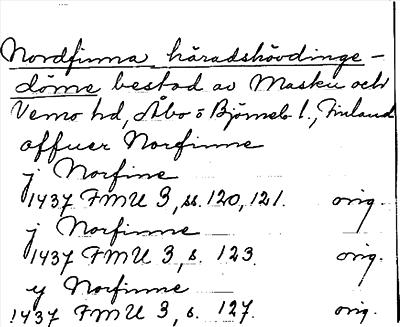 Nordfinna häradshövdinge-
döme bestod av Masku och
Vemo hd, Åbo o Björneb l., Finland
offuer Norfinne
j Norfine
1437 FMU 3, ss. 120, 121. orig.
j Norfinne
1437 FMU 3, s. 123. orig.
y Norfinne
1437 FMU 3, s. 127. orig.